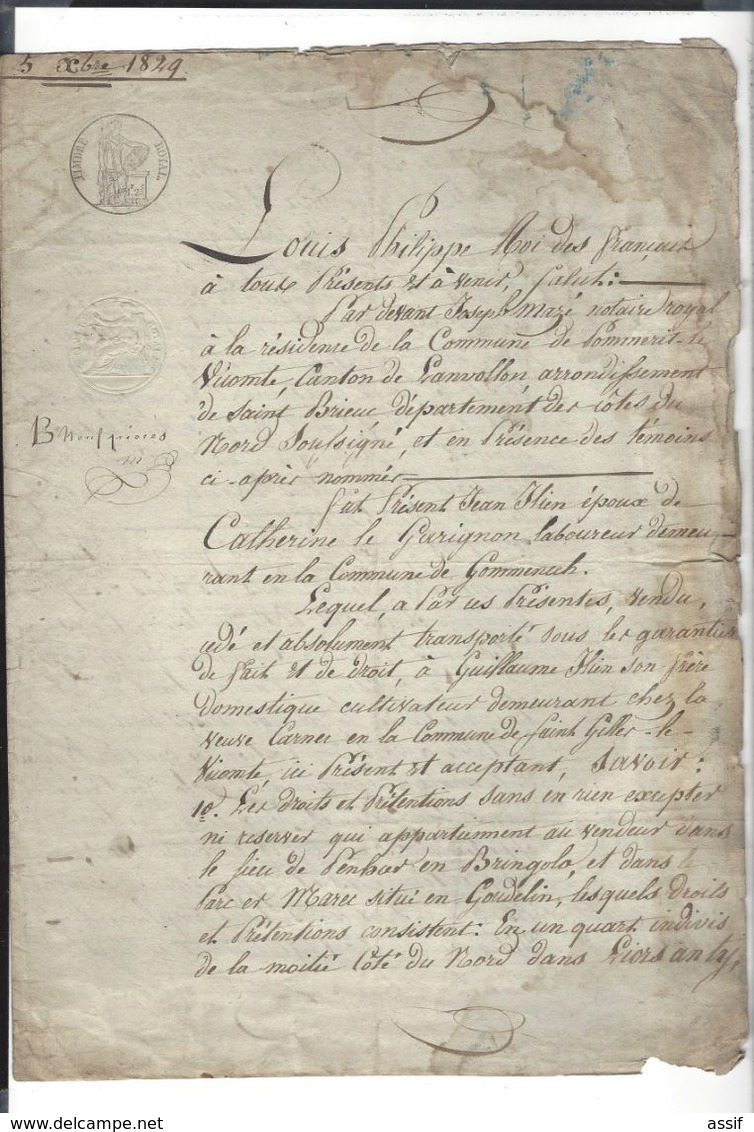 5 xbre 1829
TIMBRE ROYAL
Louis Philippe Roi des français
à tous Présents et à venir, Salut:
Par devant Joseph Mazé notaire royal
à la résidense de la Commune de Pommerit-le
Vicomte, Canton de Lanvollon arrondissement
de Saint Brieuc département des Côtes du
Nord Soulsigné, et en Présence des témoins
ci-après nommés
fut Présent Jean Ilien époux de
Catherine le Garignon laboureur demeu-
rant en la Commune de Gommenech.
Lequel, a Par ces Présentes, vendu,
cédé et absolument transporté sous les garanties
de fait et de droit, à Guillaume Ilien son frère
domestique cultivateur demeurant chez la
veuve Carnec en la Commune de Saint Gilles-le-
Vicomte, ici Présent et acceptant, Savoir:
1o. Les droits et Prétentions sans en rien excepter
ni reserver qui appartiennent au vendeur dans
le lieu de Penhoer en Bringolo, et dans le
Parc er Marec situé en Goudelin, lesquels droits
et Prétentions consistent: En un quart indivis
de la moitié Côté du Nord dans Liors an ty,
assif